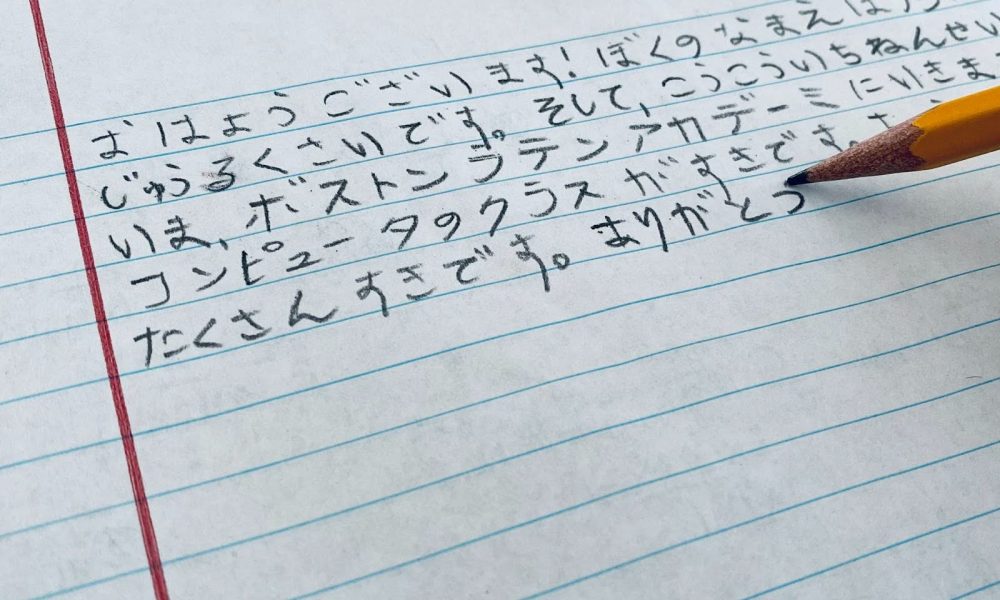 おはようございます!ぼくのなまえは
じゅうろくさいです。そして、こうこういちねんせい
いま、ボストンラテンアカデーミにいきま
コンピュータのクラスがすきです。
たくさんすきです。ありがとう